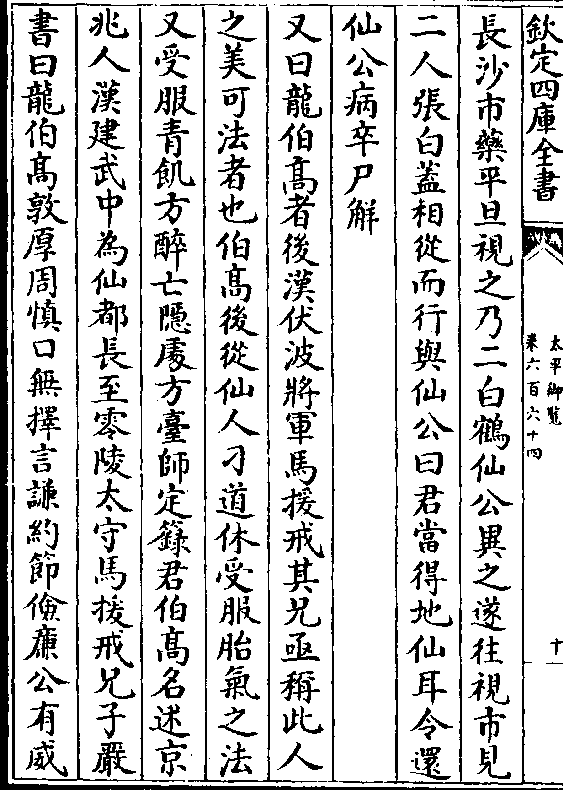 欽定四庫全書
太平御覧
卷六百六十四
十
長沙市藥平旦視之乃二白鶴仙公異之遂往視市見
二人張白蓋相從而行與仙公曰君當得地仙耳令還
仙公病卒尸解
又曰龍伯髙者後漢伏波將軍馬援戒其兄亟稱此人
之美可法者也伯髙後從仙人刁道休受服胎氣之法
又受服青飢方醉亡隱處方臺師定籙君伯髙名述京
兆人漢建武中為仙都長至零陵太守馬援戒兄子嚴
書曰龍伯髙敦厚周慎口無擇言謙約節儉廉公有威